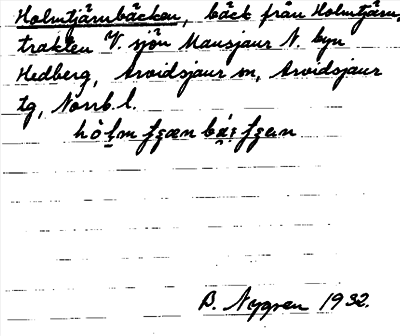 Holmtjärnbäcken, bäck från Holmtjärn,
trakten V. sjön Mausjaur N. byn
Hedberg, Arvidsjaur sn, Arvidsjaur
tg, Norrb. l.
B. Nygren 1932.